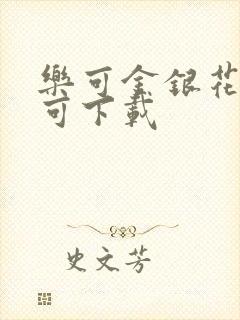 樂可金銀花
可下載
史文芳